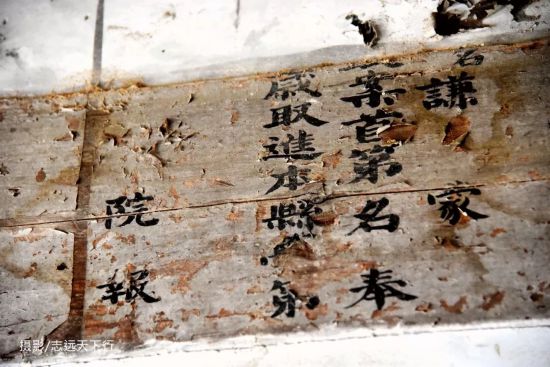 名謙 蒙
案首第 名奉
歲取進本縣 第
院 報
摄影/志远天下行